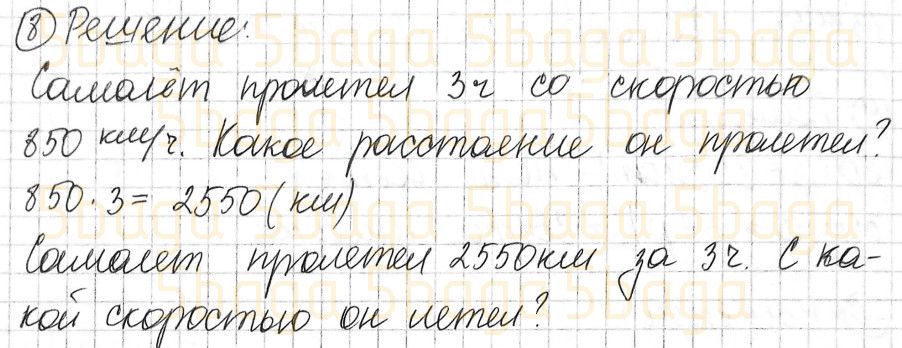 ⑧ Решение:
Самолёт пролетел 3ч со скоростью
850 км/ч. Какое расстояние он пролетел?
850 · 3 = 2550 (км)
Самолет пролетел 2550км за 3ч. С ка-
кой скоростью он летел?